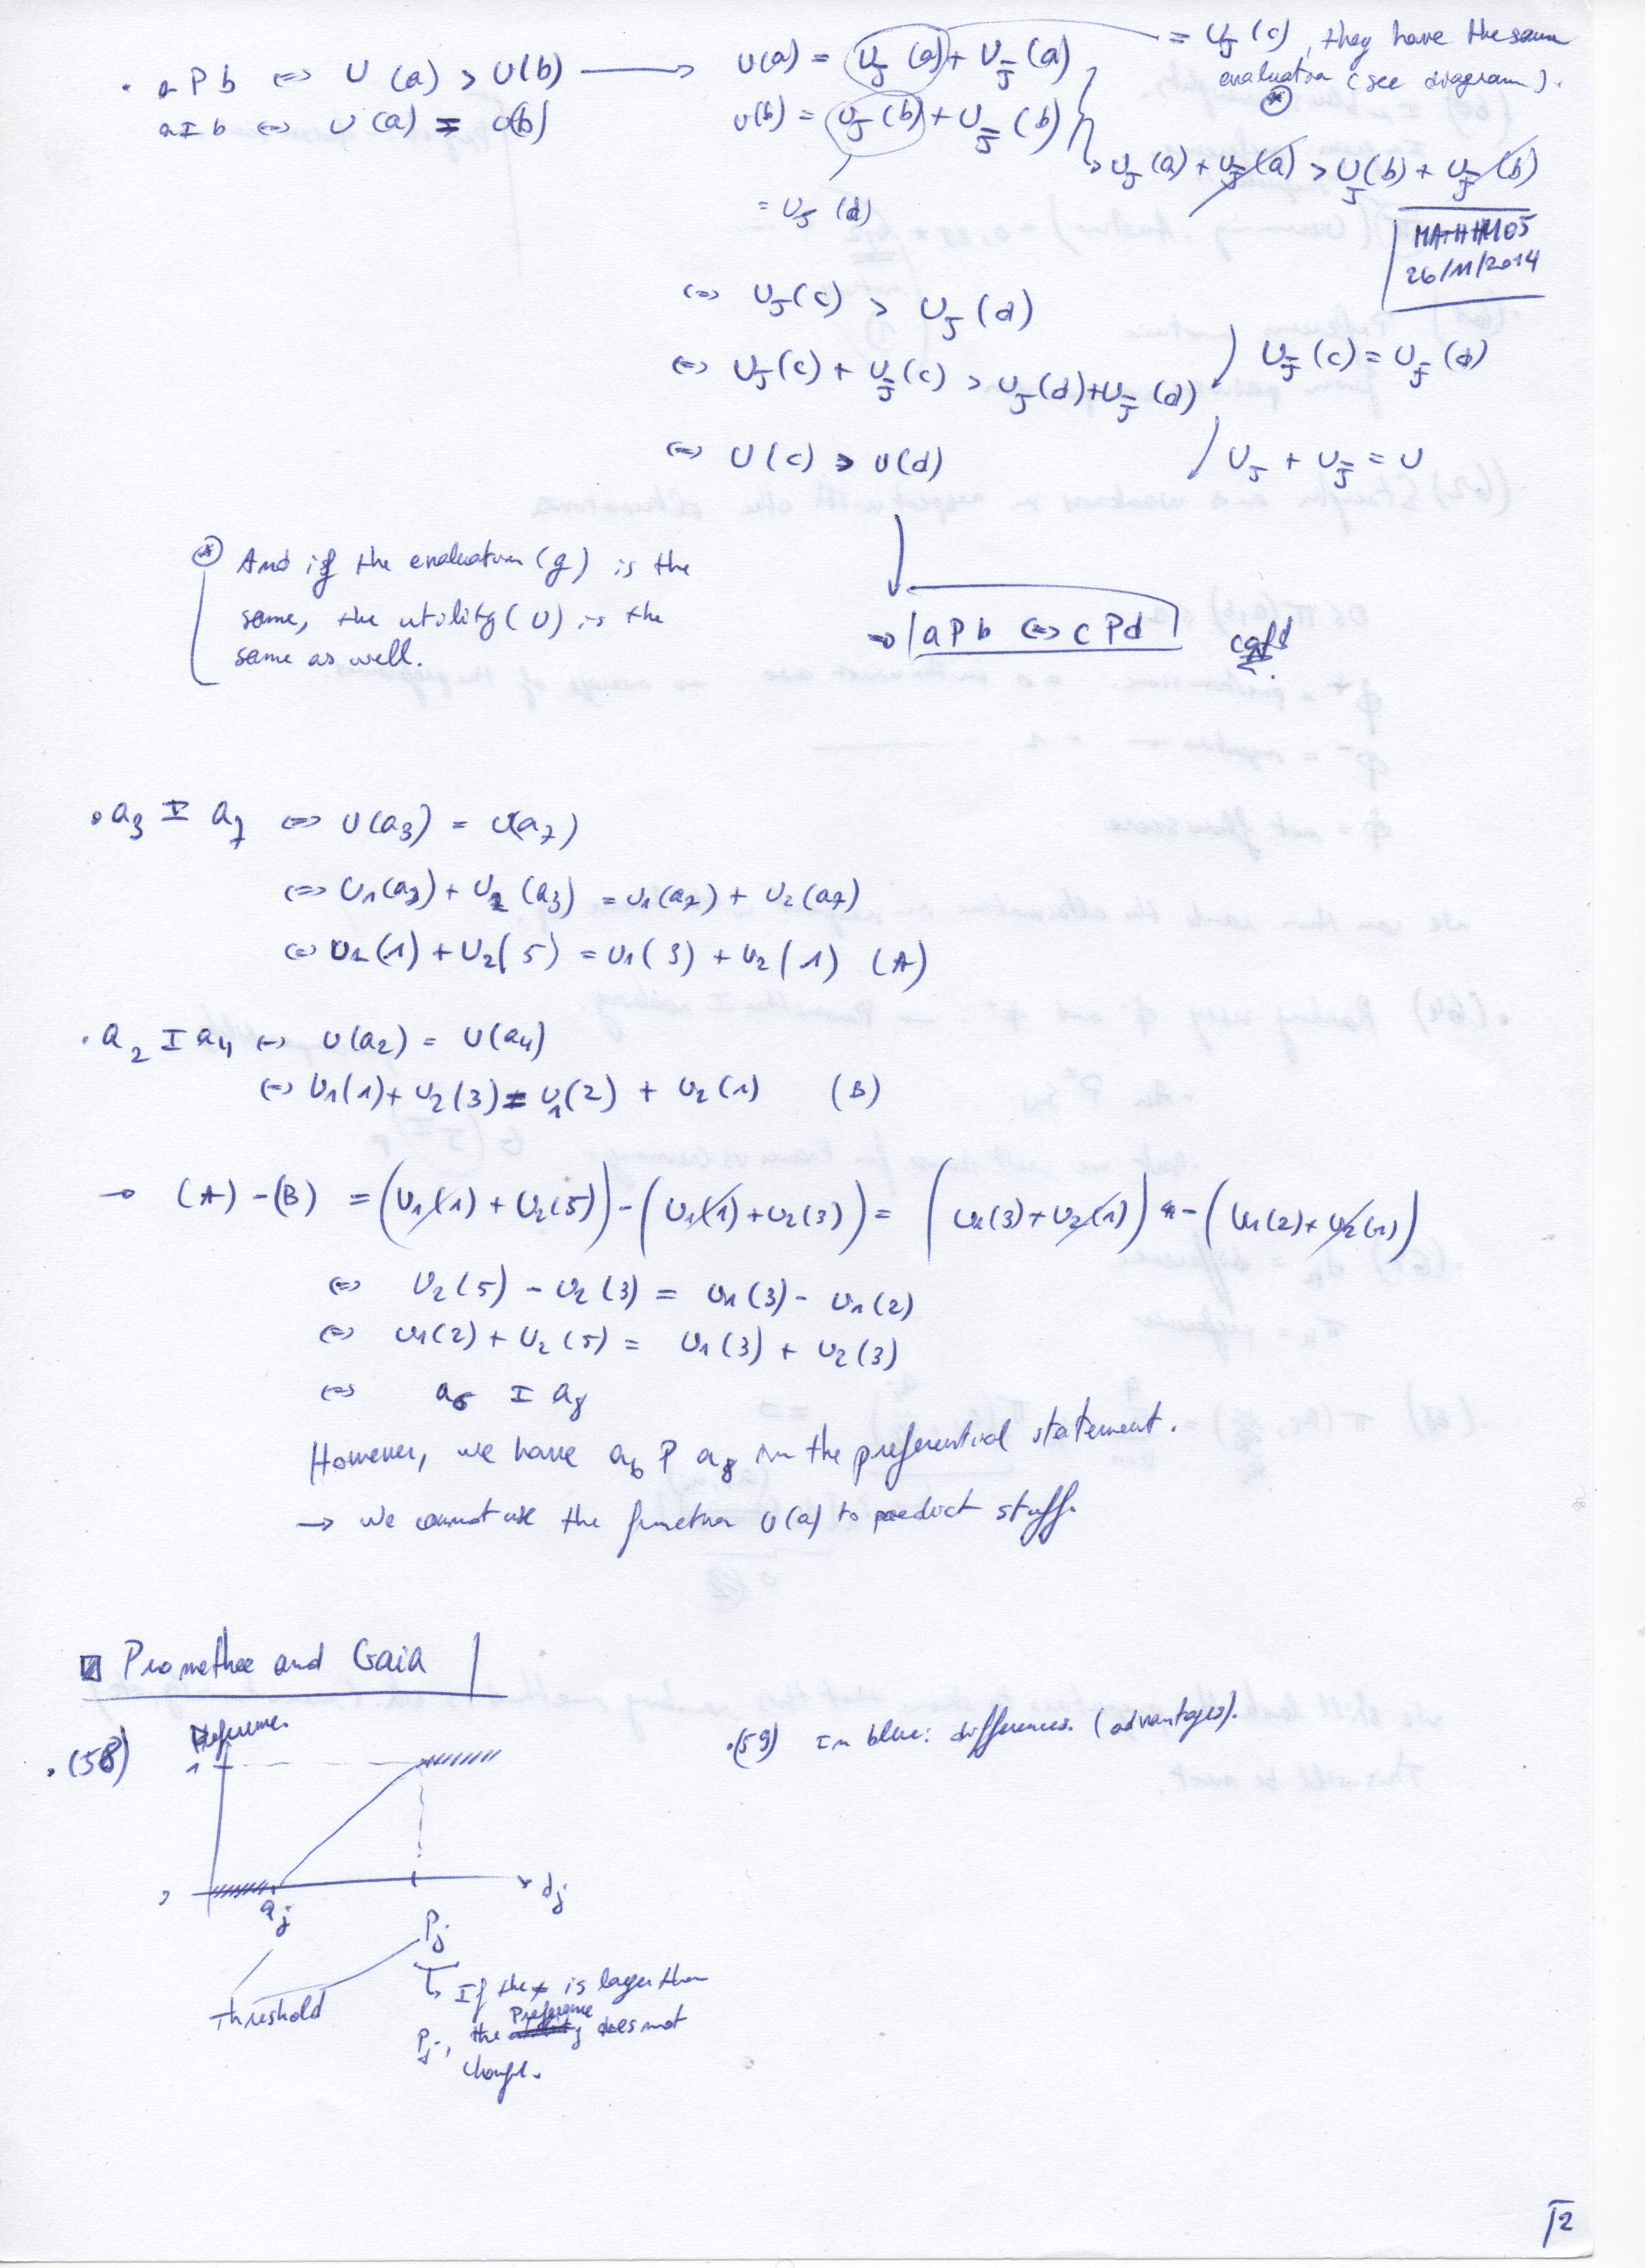 . a P b <=> U (a) > U(b) → U(a) = U_J (a) + U_J̄ (a) = U_J (c), they have the same
evaluation (see diagram).
a I b <=> U (a) = U(b) U(b) = U_J (b) + U_J̄ (b) ⊛
= U_J (d)
→ U_J (a) + U_J̄ (a) > U_J (b) + U_J̄ (b)
MATHH405
26/11/2014
<=> U_J (c) > U_J (d)
<=> U_J (c) + U_J̄ (c) > U_J (d) + U_J̄ (d) U_J̄ (c) = U_J̄ (d)
<=> U (c) > U(d) U_J + U_J̄ = U
⊛ And if the evaluation (g) is the
same, the utility (U) is the
same as well.
→ a P b <=> c P d cqfd
. a₃ I a₇ <=> U(a₃) = U(a₇)
<=> U₁(a₃) + U₂ (a₃) = U₁(a₇) + U₂ (a₇)
<=> U₁ (1) + U₂ (5) = U₁ (3) + U₂ (1) (A)
. a₂ I a₄ <=> U(a₂) = U(a₄)
<=> U₁(1) + U₂ (3) = U₁(2) + U₂ (1) (B)
→ (A) - (B) = (U₁(1) + U₂(5)) - (U₁(1) + U₂(3)) = (U₁(3) + U₂(1)) - (U₁(2) + U₂(1))
<=> U₂ (5) - U₂ (3) = U₁ (3) - U₁ (2)
<=> U₁(2) + U₂ (5) = U₁ (3) + U₂ (3)
<=> a₆ I a₈
However, we have a₆ P a₈ in the preferential statement.
→ We cannot use the function U(a) to predict stuff.
Promethee and Gaia
. (58) Preference .(59) In blue: differences. (advantages).
1
d_j
q_j
P_j
Threshold
If the ≠ is larger than
P_j, the Preference does not
change.
12